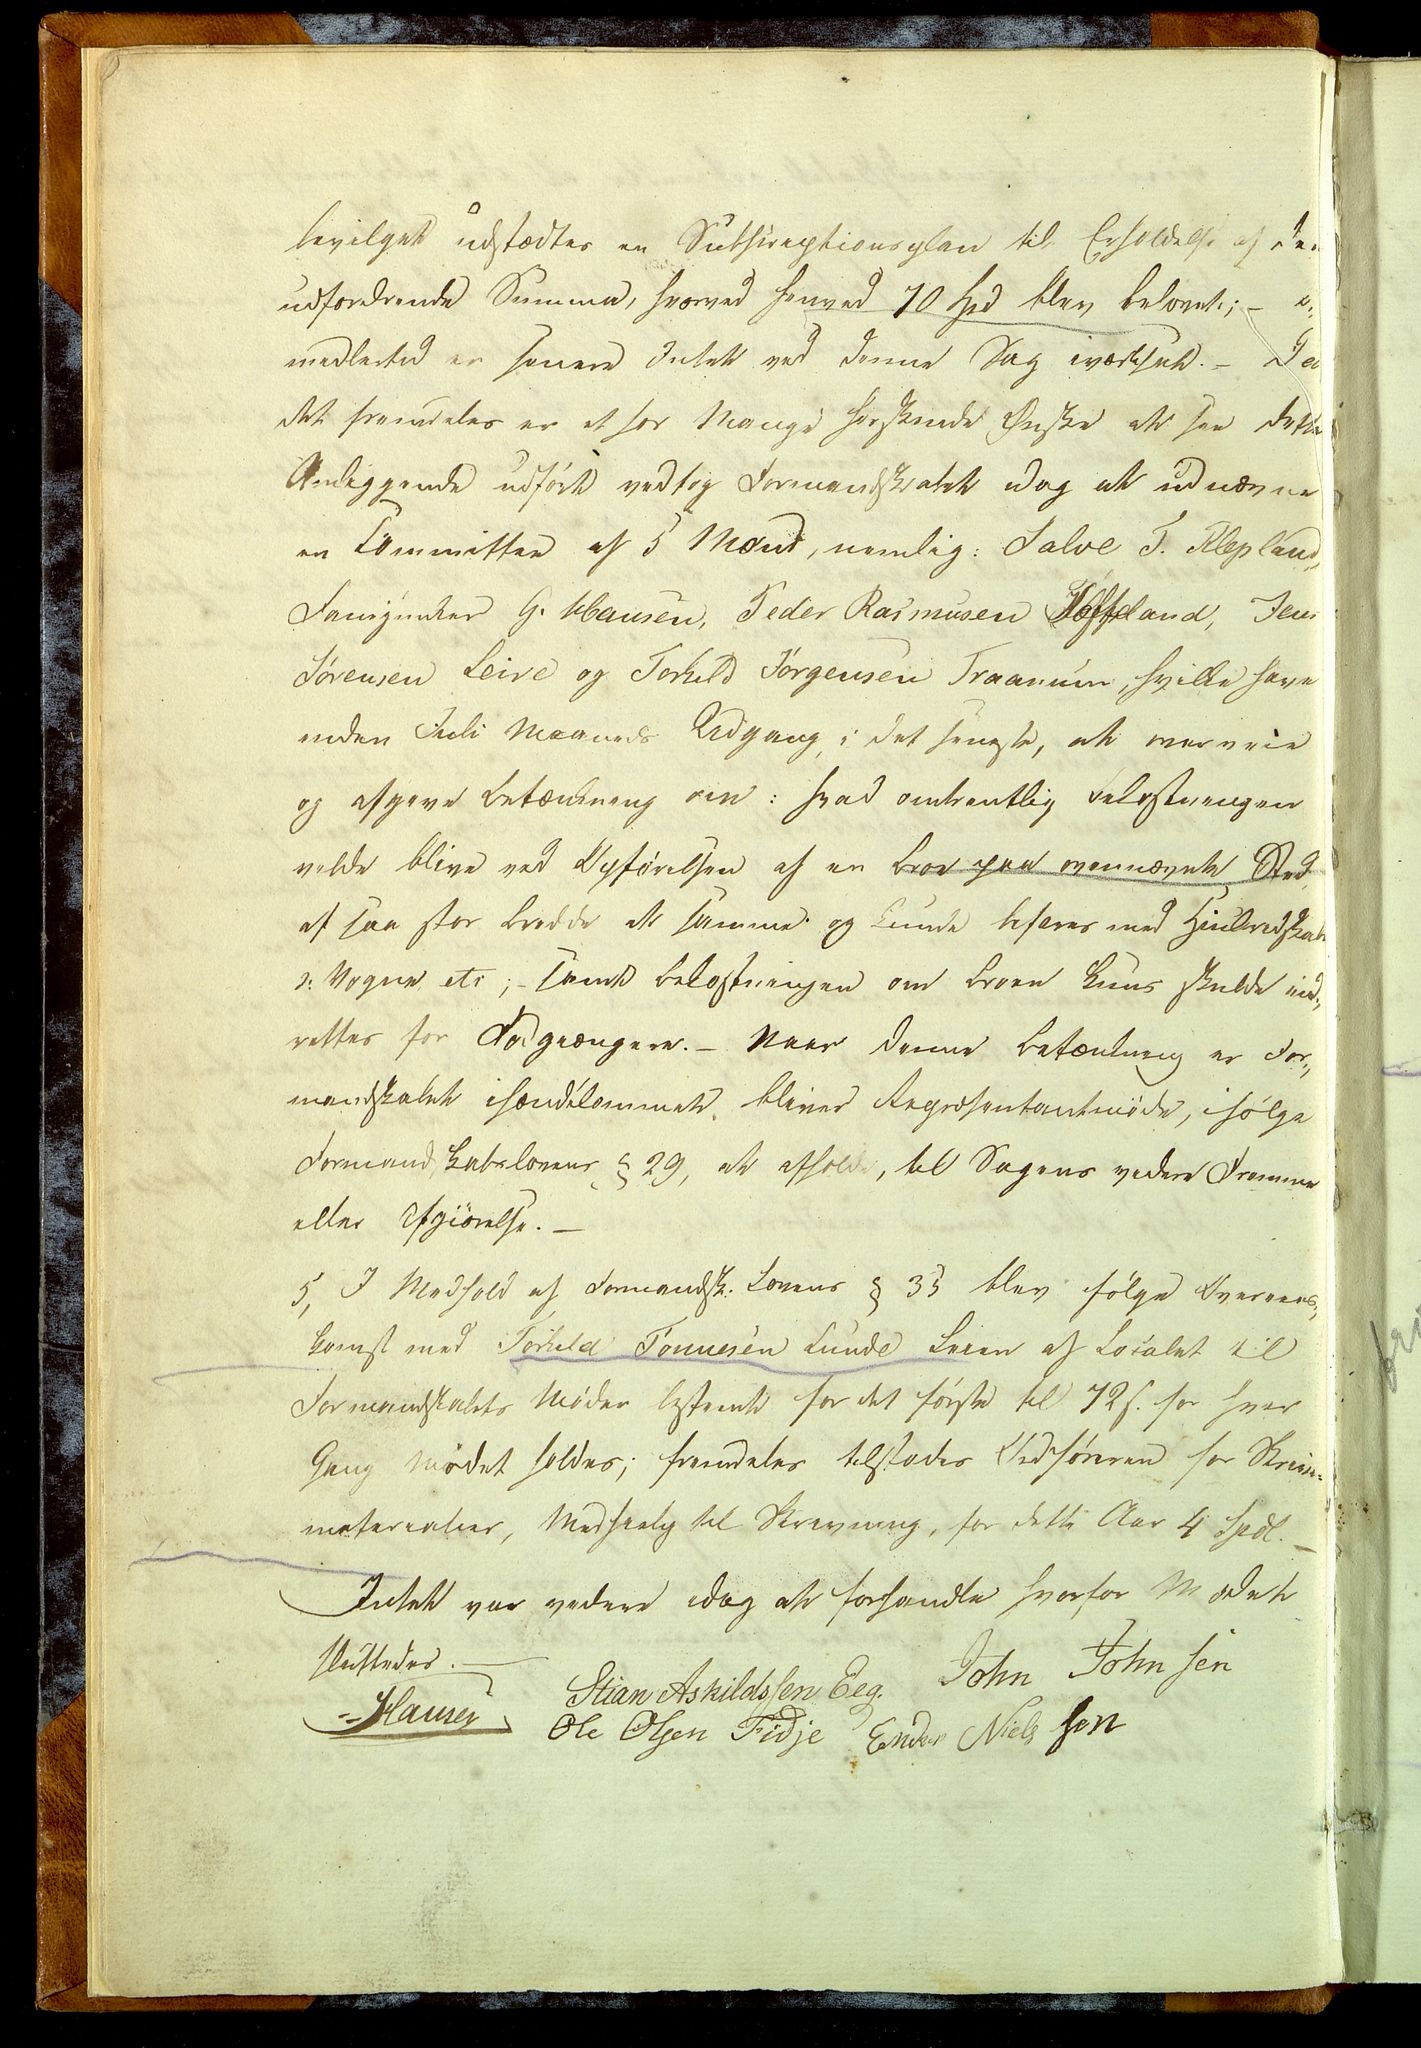 bevilget udstædtes en Subscreptionsplan til Erholdelse af den
udfordrende Summa, hvorved henved 70 Spd blev belovet; –
medlertid er senere Intet ved denne Sag iværksat. – Da
det fremdeles er et for Mange herskende Ønske at see dette
Anliggende udført vedtog Formandskabet idag at udnævne
en Committee af 5 Mænd, nemlig: Salve T. Klepland,
Fanejunker G. Hansen, Peder Rasmusen Høffland, Jens
Sørensen Leire og Torkeld Jørgensen Traanum, hvilke have
inden Juli Maaneds Udgang, i det seneste, at overveie
og afgive Betænkning om: hvad omtrentlig Bekostningen
vilde blive ved Opførelsen af en Broe paa ovennævnte Sted,
af saa stor Bredde at samme og kunde befares med Hiulredskab
ɔ: Vogne etc; – samt Bekostningen om Broen kuns skulde ind„
rettes for Fodgiængere. – Naar denne Betænkning er For„
mandskabet ihændekommet, bliver Repræsentantmøde, ifølge
Formandskabslovens § 29, at afholde, til Sagens videre Fremme
eller Afgiørelse. –
5, I Medhold af Formandsk. Lovens § 35 blev ifølge Overeens„
komst med Torkeld Tønnesen Lunde Leien af Localet til
Formandskabets Møder bestemt for det første til 72 s. for hver
Gang Mødet holdes; fremdeles tilstodes Ordføreren for Skrive„
materialier, Medhielp til Skrivning, for dette Aar 4 Spdl. –
Intet var videre idag at forhandle hvorfor Mødet
sluttedes. –
Hansen Stian Askildssen Eeg. John Johnsen
Ole Olsen Fidje Ender Nielssen